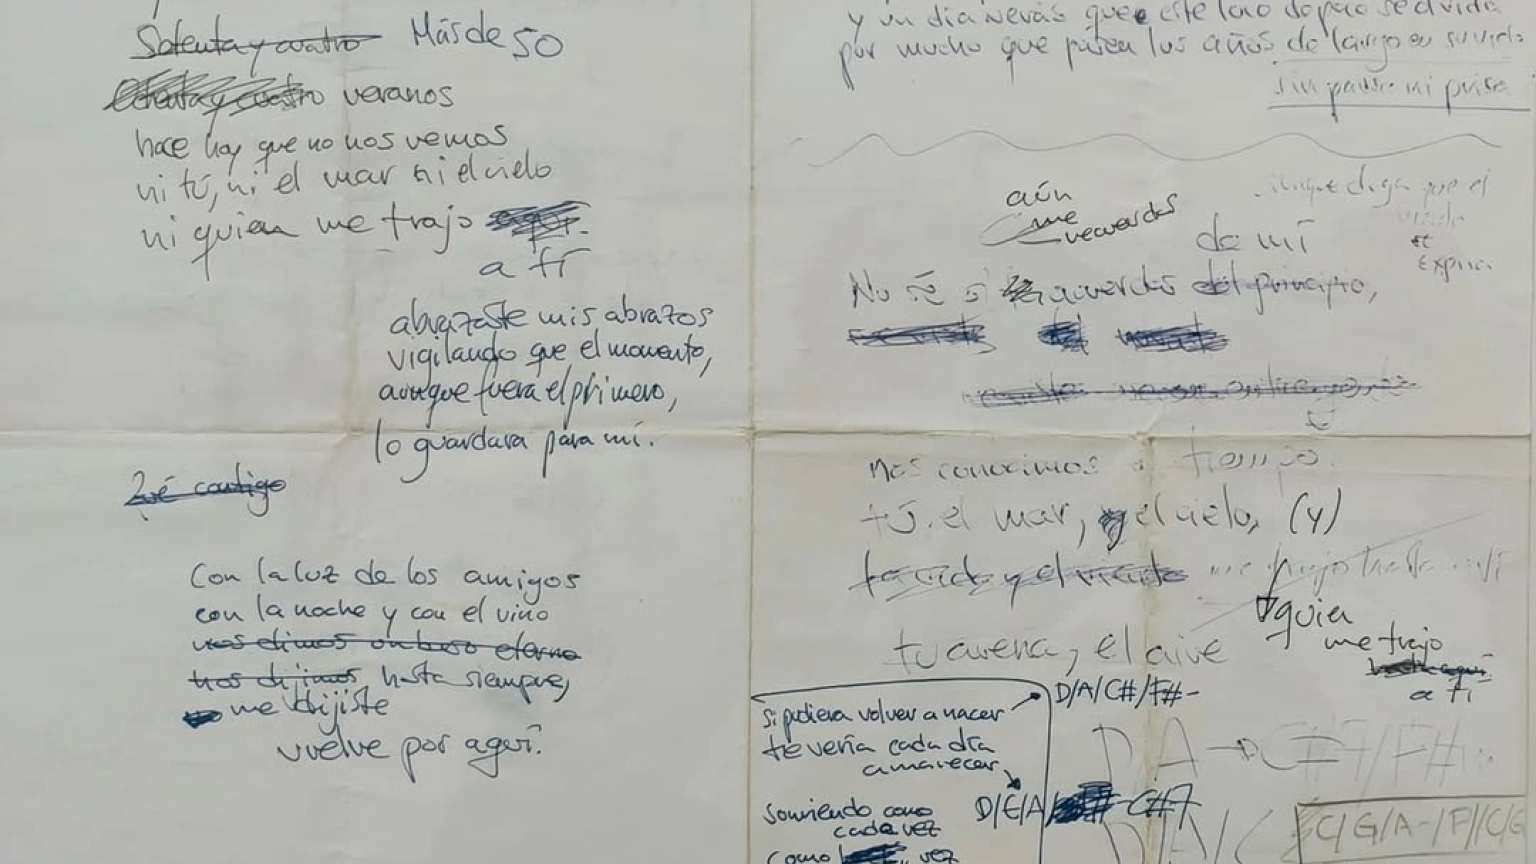 Setenta y cuatro Más de 50
veranos
hace hoy que no nos vemos
ni tú, ni el mar ni el cielo
ni quien me trajo
a tí
abrazaste mis abrazos
vigilando que el momento,
aunque fuera el primero,
lo guardara para mí.
contigo
Con la luz de los amigos
con la noche y con el vino
nos dimos un beso eterno
nos dijimos hasta siempre,
me dijiste
vuelve por aquí.
y un día verás que este loco
por mucho que pasen los años de largo en su vida
sin pausa ni prisa
aún
me
recuerdas
aunque diga que el
se
de mí
No sé si acuerdas del principio,
nos conocimos
tú. el mar, y el cielo, (y)
quien
me trajo
a tí
tu arena, el aire
D/A/C#/F#-
si pudiera volver a nacer
te vería cada día
amanecer
sonriendo como
cada vez
como vez
D/E/A/ C#7
D A C#7/F#
C/G/A-/F//C/G